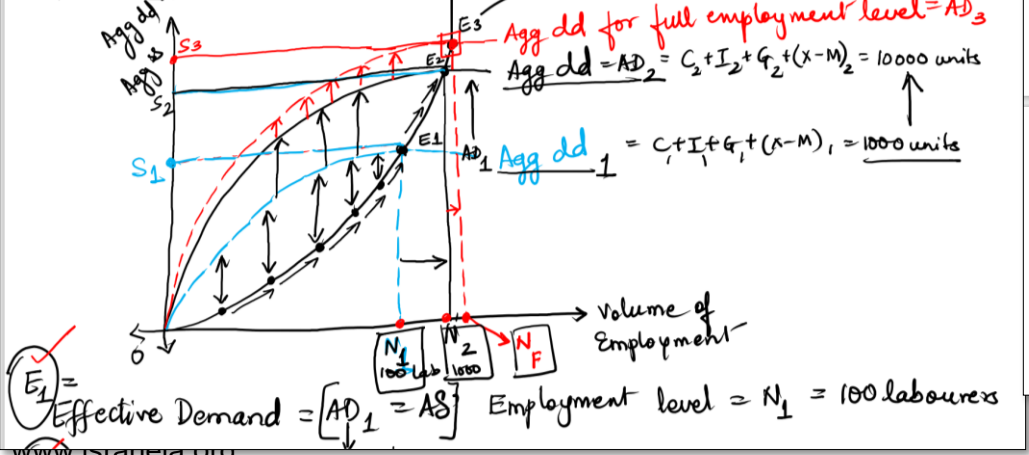 Agg dd
Agg ss
S3
E3
Agg dd for full employment level = AD3
S2
E2
Agg dd = AD2 = C2+I2+G2+(X-M)2 = 10000 units
S1
E1
AD1
Agg dd1 = C1+I1+G1+(X-M)1 = 1000 units
O
Volume of
Employment
N1
100 lab
N2
1000
NF
E1 =
Effective Demand = [AD1 = AS] Employment level = N1 = 100 labourers